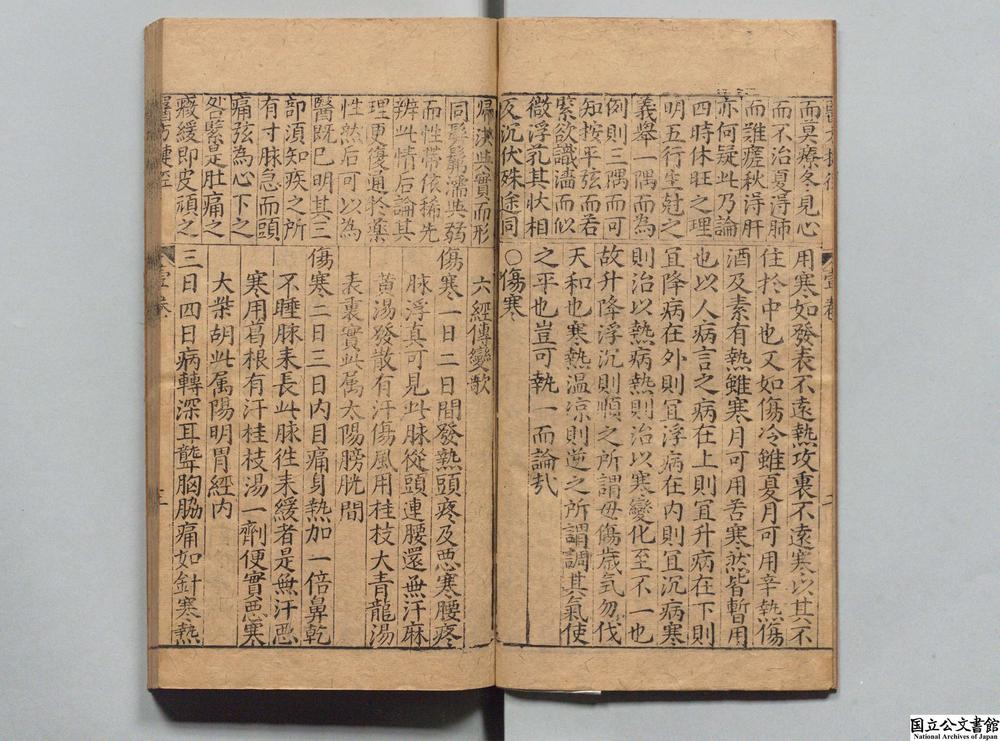 而莫療冬見心
而不治夏淂肺
而難瘥秋淂肝
亦何疑此乃論
四時休旺之理
明五行生尅之
義舉一隅而為
例則三隅而可
知按平弦而若
緊欲識濇而似
微浮芤其狀相
反沉伏殊途同
壹卷
用寒如發表不遠熱攻裏不遠寒以其不
住扵中也又如傷冷雖夏月可用辛熱傷
酒及素有熱雖寒月可用苦寒然皆暫用
也以人病言之病在上則冝升病在下則
冝降病在外則冝浮病在内則冝沉病寒
則治以熱病熱則治以寒變化至不一也
故升降浮沉則順之所謂毋傷歲氣勿伐
天和也寒熱温凉則逆之所謂調其氣使
之平也豈可執一而論㢤
○傷寒
歸洪與實而形
同髣髴濡與弱
而性帶依稀先
辨此情后論其
理更復通於藥
性然后可以為
醫既已明其三
部須知疾之所
有寸脉急而頭
痛弦為心下之
咎緊是肚痛之
癥緩即皮頑之
醫方捷徑
六經傳變歌
傷寒一日二日間發熱頭疼及惡寒腰疼
脉浮真可見此脉從頭連腰還無汗麻
黄湯發散有汗傷風用桂枝大青龍湯
表裏實此属太陽膀胱間
傷寒二日三日内目痛身熱加一倍鼻乾
不睡脉来長此脉徃来緩者是無汗惡
寒用葛根有汗桂枝湯一劑便實惡寒
大柴胡此属陽明胃經内
三日四日病轉深耳聾胸脇痛如針寒熱
壹卷
国立公文書館
National Archives of Japan